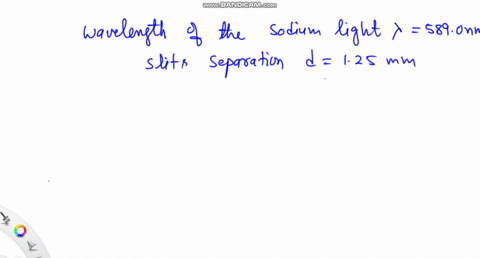 www.BANDICAM.com
wavelength of the sodium light λ = 589.0nm
slits separation d = 1.25 mm